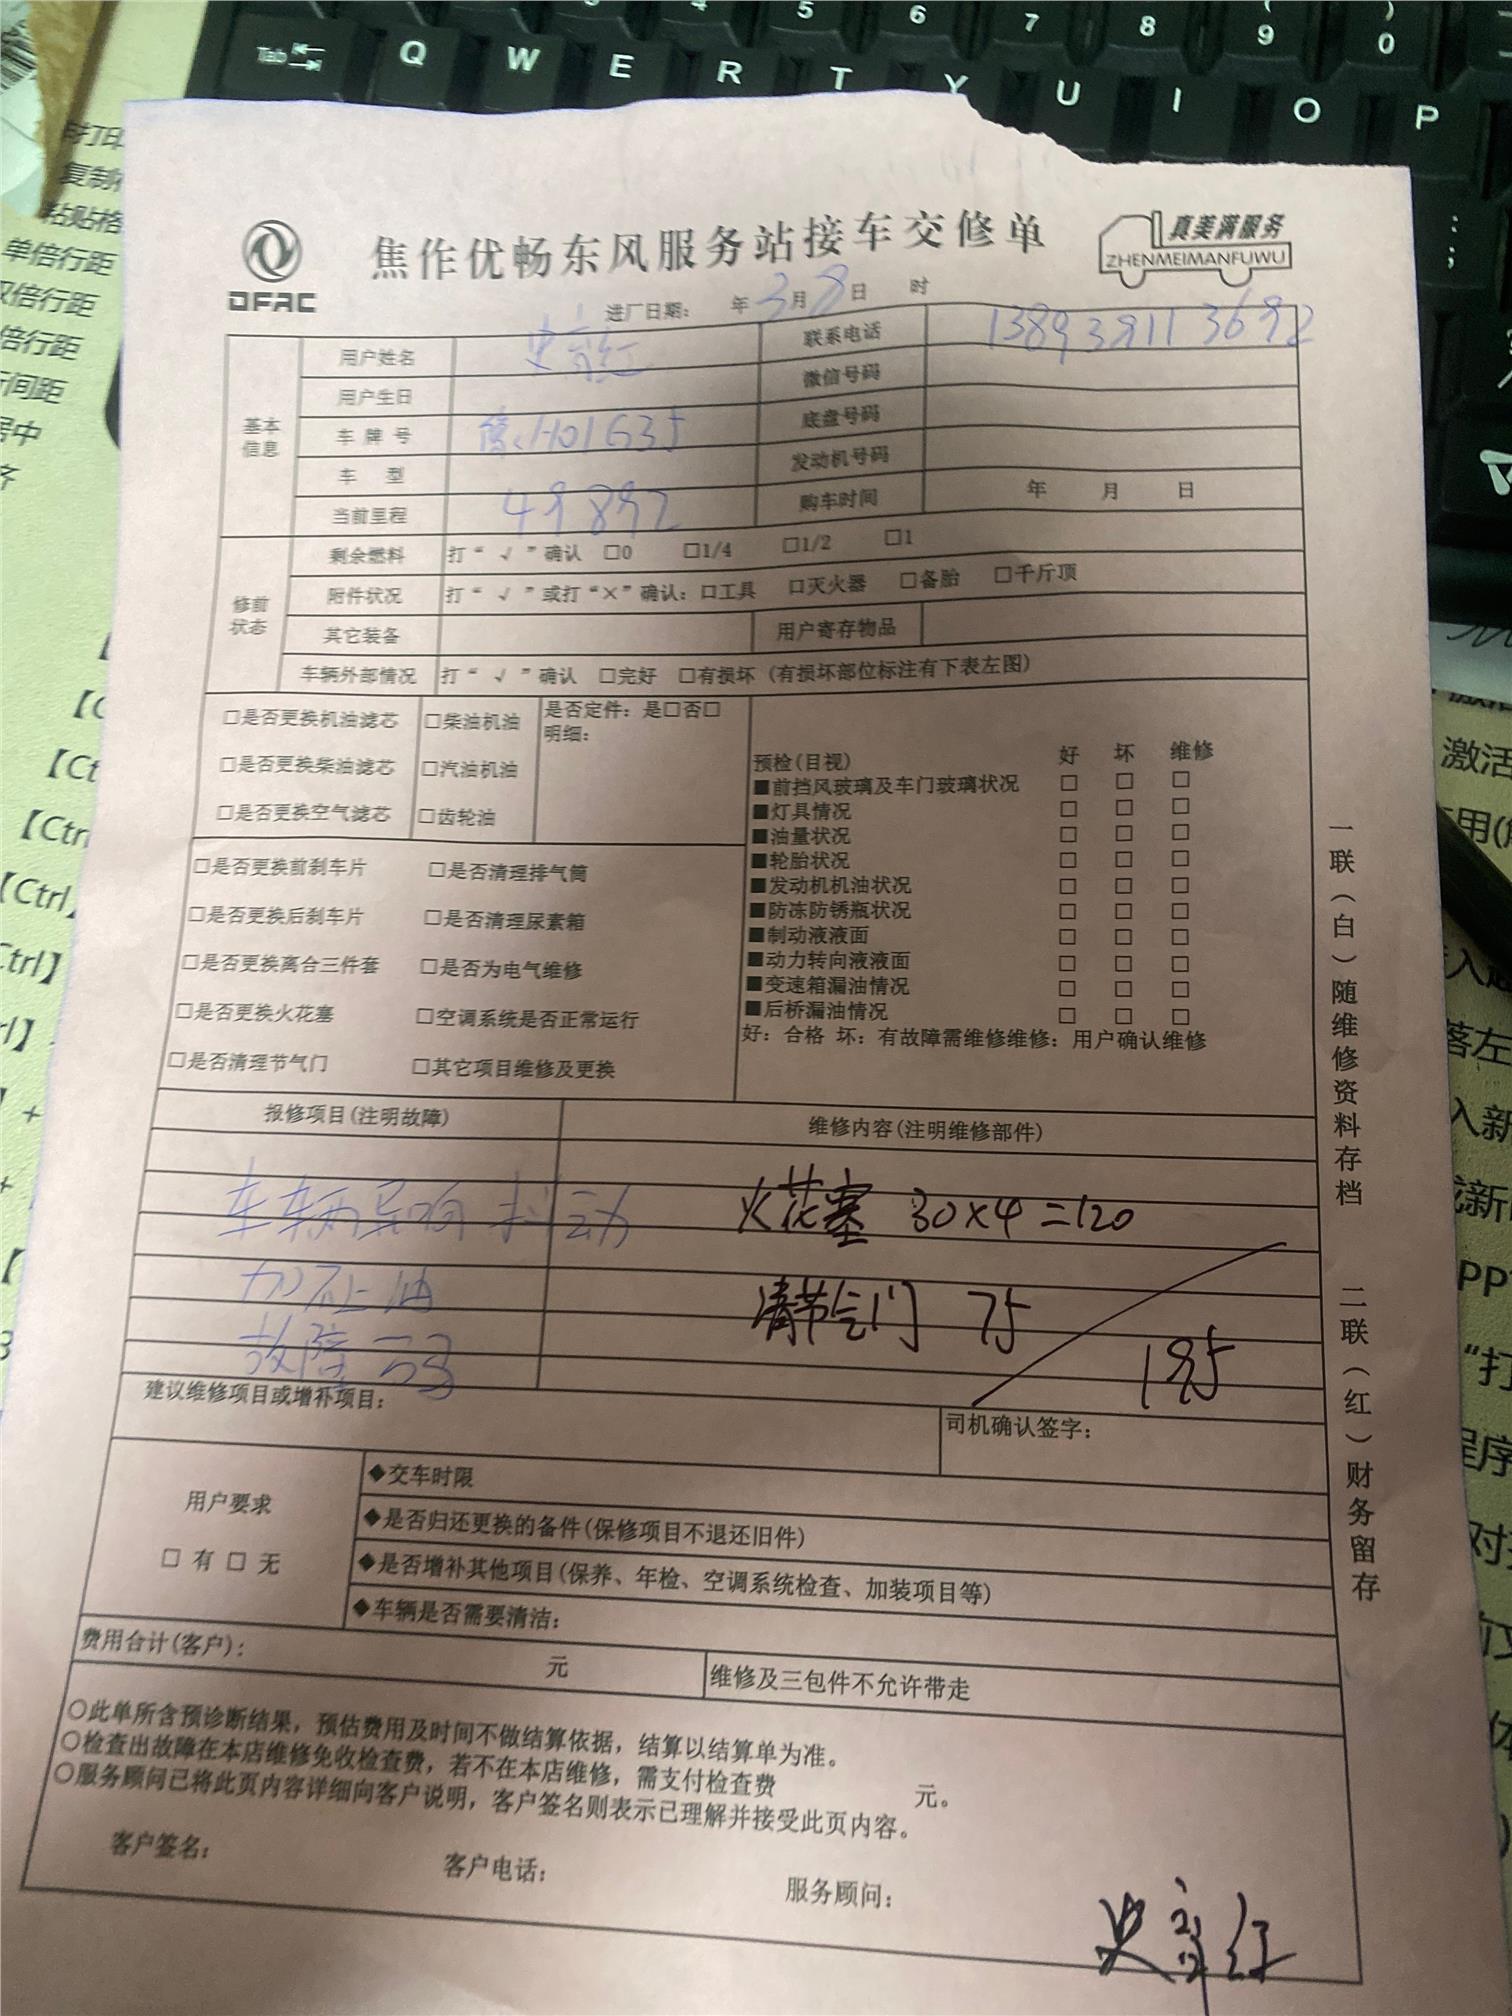 Tab
Q W E R T Y U I O P
4 5 6 7 8 9 0
真美满服务
ZHENMEIMANFUWU
DFAC
焦作优畅东风服务站接车交修单
进厂日期: 年 3月8日 时
基本信息
用户姓名 联系电话
用户生日 微信号码
车牌号 底盘号码
车型 发动机号码
当前里程 49892 购车时间 年 月 日
修前状态
剩余燃料 打“√”确认 □0 □1/4 □1/2 □1
附件状况 打“√”或打“×”确认: □工具 □灭火器 □备胎 □千斤顶
其它装备 用户寄存物品
车辆外部情况 打“√”确认 □完好 □有损坏 (有损坏部位标注有下表左图)
□是否更换机油滤芯 □柴油机油 是否定件: 是□否□
明细:
□是否更换柴油滤芯 □汽油机油
□是否更换空气滤芯 □齿轮油
□是否更换前刹车片 □是否清理排气筒
□是否更换后刹车片 □是否清理尿素箱
□是否更换离合三件套 □是否为电气维修
□是否更换火花塞 □空调系统是否正常运行
□是否清理节气门 □其它项目维修及更换
预检(目视) 好 坏 维修
■前挡风玻璃及车门玻璃状况 □ □ □
■灯具情况 □ □ □
■油量状况 □ □ □
■轮胎状况 □ □ □
■发动机机油状况 □ □ □
■防冻防锈瓶状况 □ □ □
■制动液液面 □ □ □
■动力转向液液面 □ □ □
■变速箱漏油情况 □ □ □
■后桥漏油情况 □ □ □
好: 合格 坏: 有故障需维修维修: 用户确认维修
报修项目(注明故障) 维修内容(注明维修部件)
车辆异响 抖动 火花塞 30×4=120
加不上油 清节气门 75
故障码 195
建议维修项目或增补项目: 司机确认签字:
用户要求
□ 有 □ 无
◆交车时限
◆是否归还更换的备件(保修项目不退还旧件)
◆是否增补其他项目(保养、年检、空调系统检查、加装项目等)
◆车辆是否需要清洁:
费用合计(客户): 元 维修及三包件不允许带走
○此单所含预诊断结果, 预估费用及时间不做结算依据, 结算以结算单为准。
○检查出故障在本店维修免收检查费, 若不在本店维修, 需支付检查费 元。
○服务顾问已将此页内容详细向客户说明, 客户签名则表示已理解并接受此页内容。
客户签名: 客户电话: 服务顾问:
一联(白)随维修资料存档 二联(红)财务留存
单倍行距